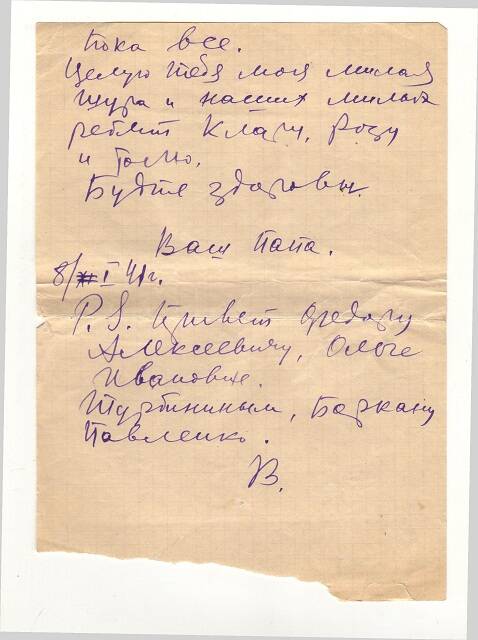 Пока все.
Целую тебя моя милая
Шура и наших милых
ребят Клару, Розу
и Толю.
Будте здоровы.
Ваш папа.
8/I 41г.
P.S. Привет Федору
Алексеевичу, Ольге
Ивановне.
Турбиным, Баркану
Павленко.
В.